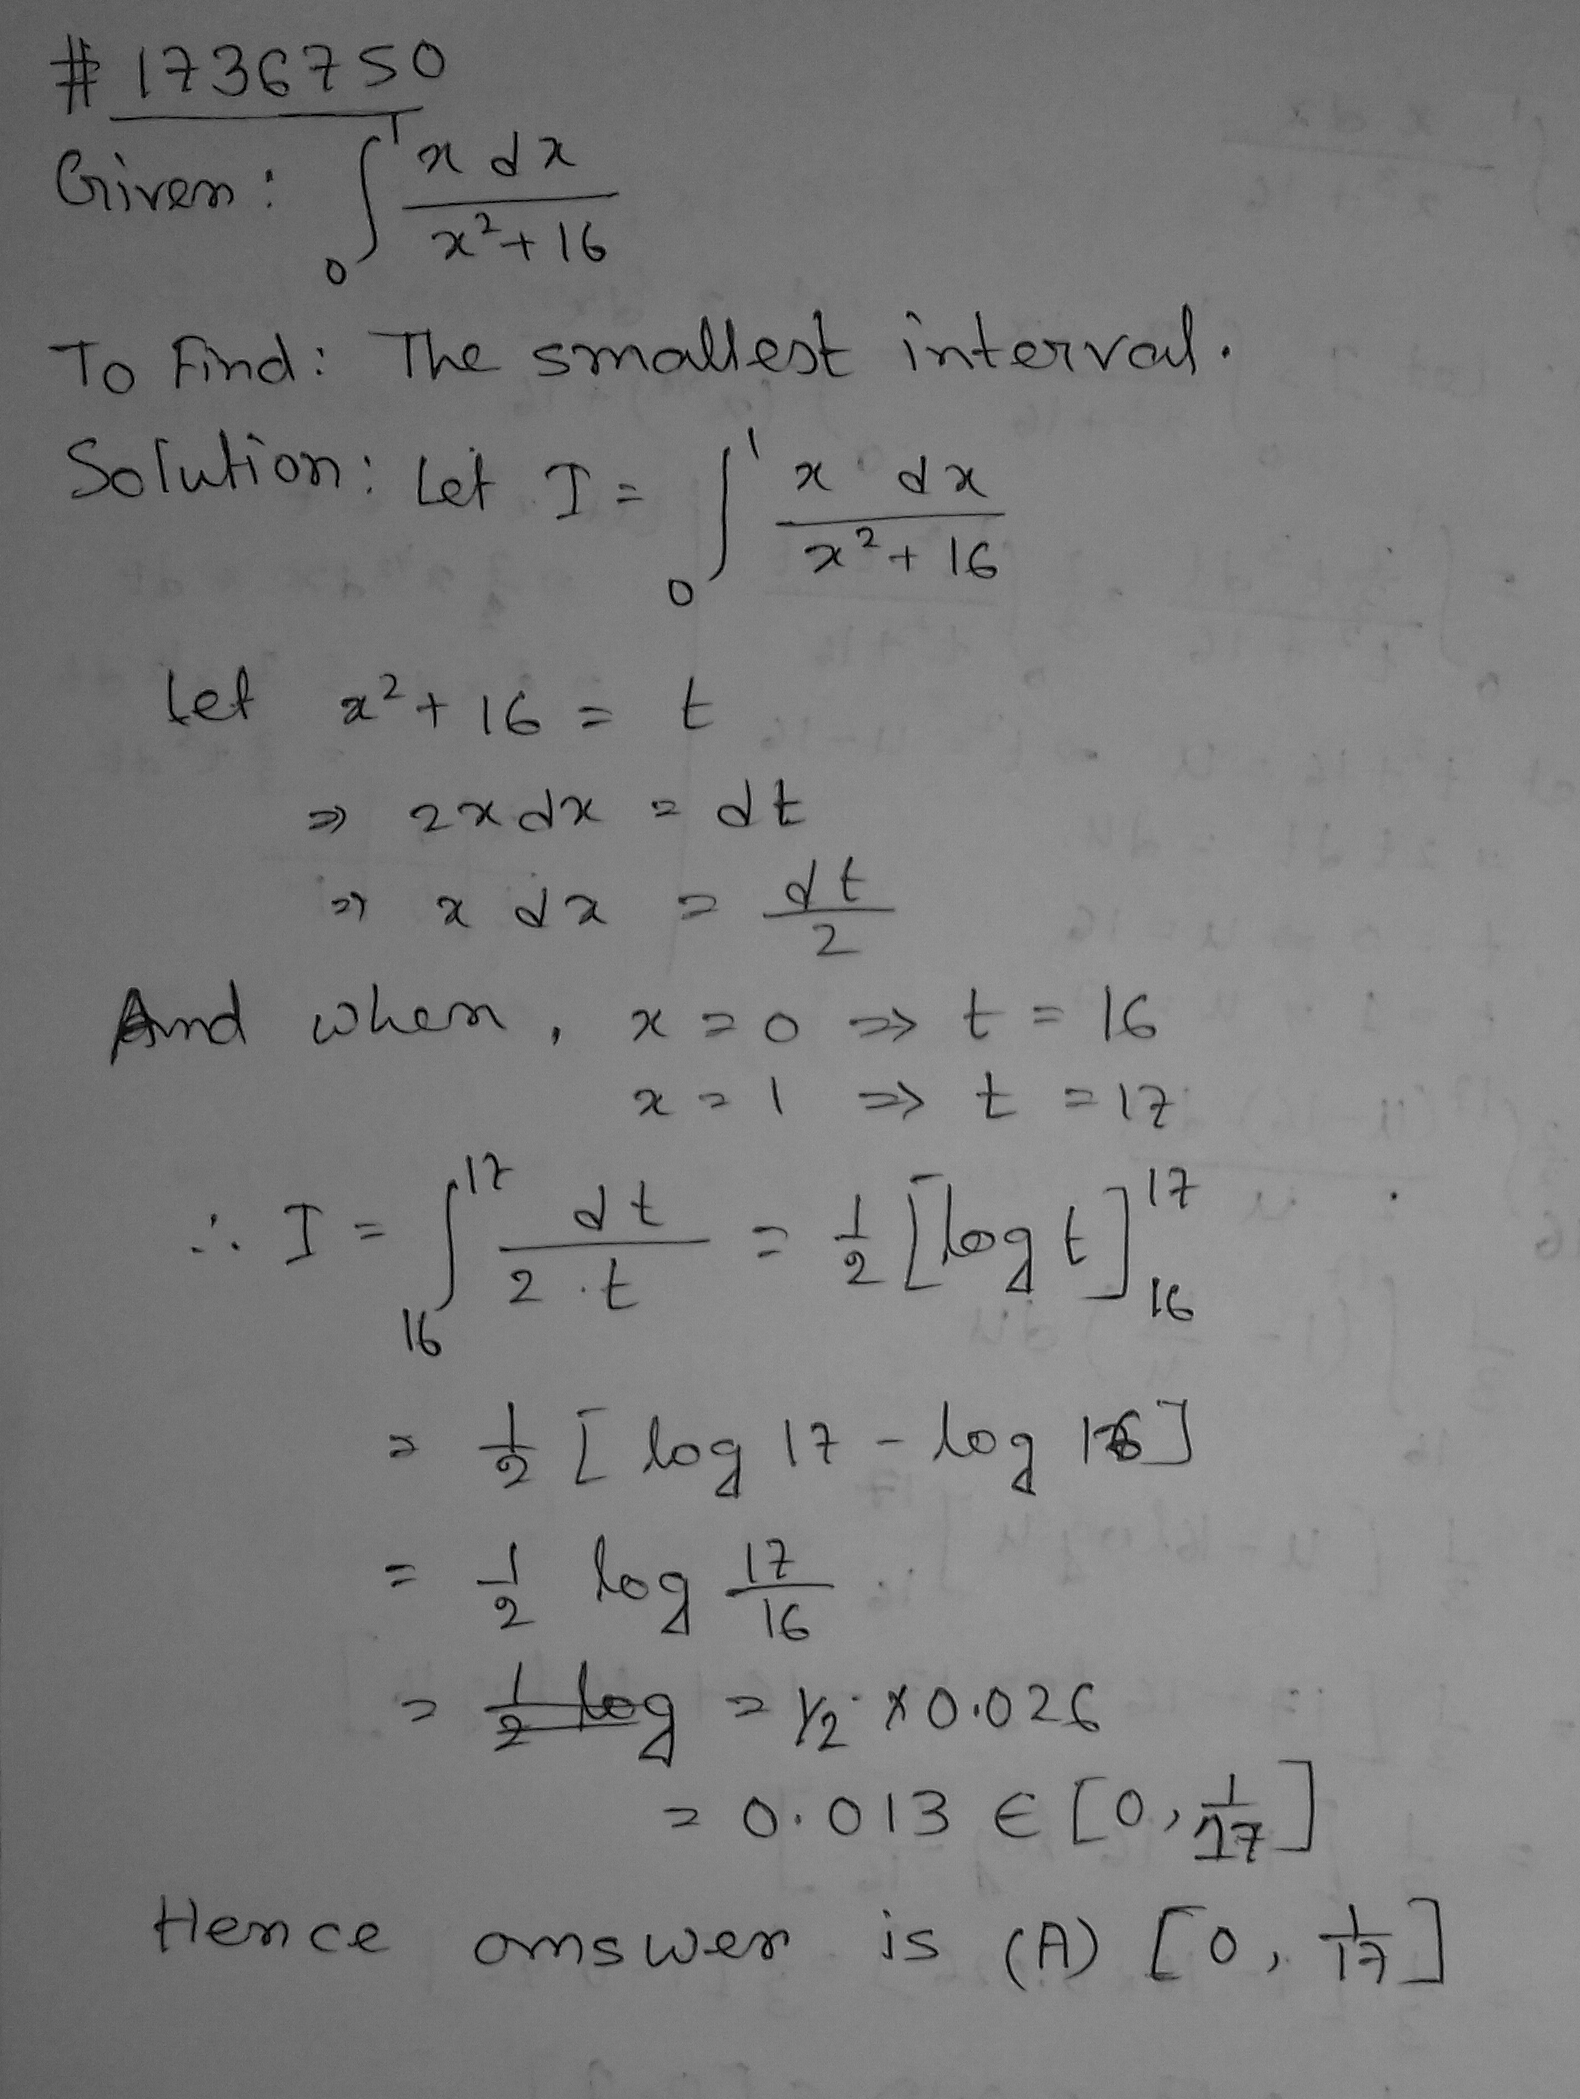 # 1736750
Given: ∫₀¹ x dx / x² + 16
To Find: The smallest interval.
Solution: Let I = ∫₀¹ x dx / x² + 16
Let x² + 16 = t
⇒ 2x dx = dt
⇒ x dx = dt / 2
And when, x = 0 ⇒ t = 16
x = 1 ⇒ t = 17
∴ I = ∫₁₆¹⁷ dt / 2.t = 1/2 [log t]₁₆¹⁷
= 1/2 [log 17 - log 16]
= 1/2 log 17/16
= 1/2 log = 1/2 × 0.026
= 0.013 ∈ [0, 1/17]
Hence answer is (A) [0, 1/17]